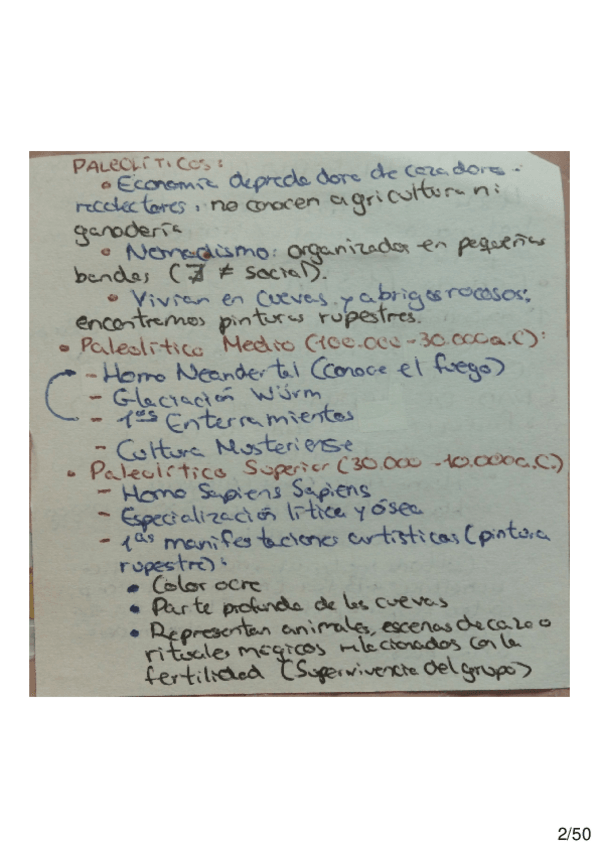 PALEOLÍTICOS:
• Economía depredadora de cazadores-
recolectores, no conocen agricultura ni
ganadería
• Nomadismo: organizados en pequeñas
bandas (∄ ≠ social).
• Vivían en cuevas y abrigos rocosos;
encontramos pinturas rupestres.
• Paleolítico Medio (100.000-30.000a.C):
- Homo Neandertal (conoce el fuego)
- Glaciación Würm
- 1os Enterramientos
- Cultura Musteriense
• Paleolítico Superior (30.000-10.000a.C.)
- Homo Sapiens Sapiens
- Especialización lítica y ósea
- 1as manifestaciones artísticas (pintura
rupestre):
• Color ocre
• Parte profunda de las cuevas
• Representan animales, escenas de caza o
rituales mágicos relacionados con la
fertilidad (Supervivencia del grupo)
2/50